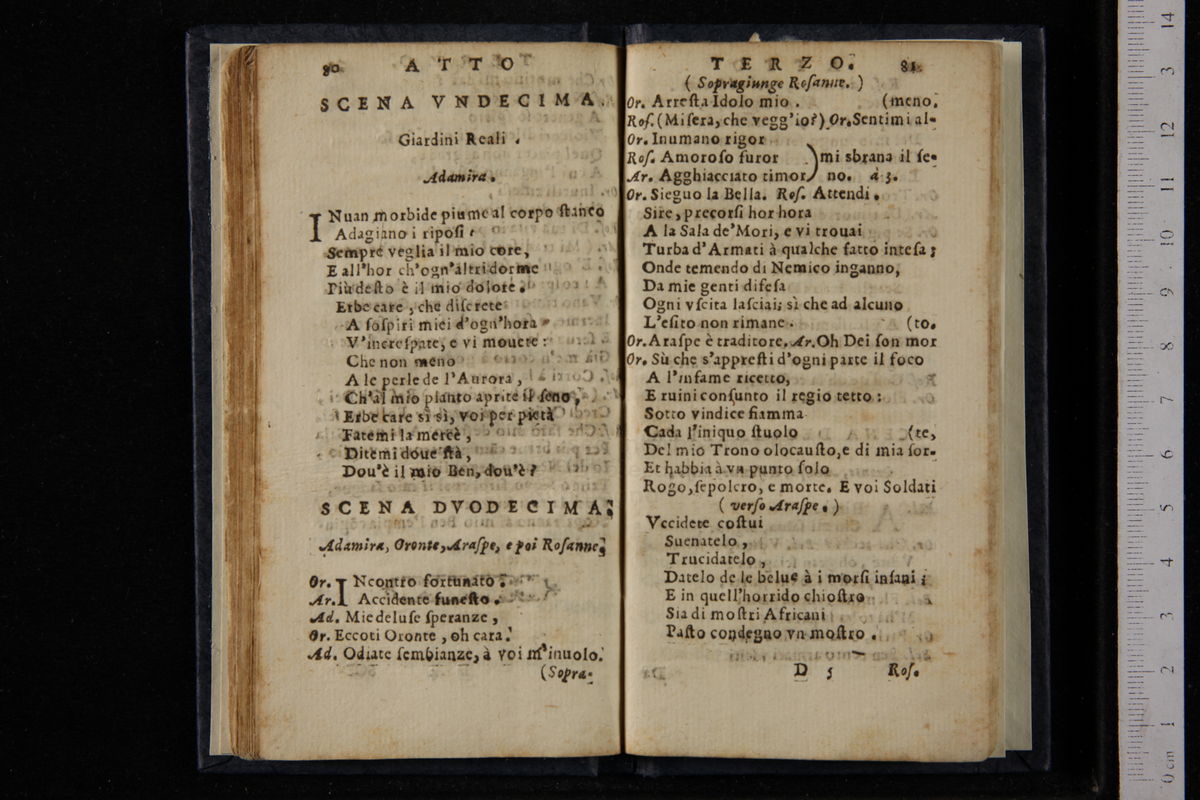 80 ATTO
SCENA VNDECIMA.
Giardini Reali.
Adamira.
INuan morbide piume al corpo ſtanco
Adagiano i ripoſi
Sempre veglia il mio core,
E all'hor ch'ogn'altri dorme
Più deſto è il mio dolore.
Erbe care, che diſcrete
A ſoſpiri miei d'ogn'hora
V'increſpate, e vi mouete:
Che non meno
A le perle de l'Aurora,
Ch'al mio pianto aprite il ſeno,
Erbe care sì sì, voi per pietà
Fatemi la mercè,
Ditemi doue ſtà,
Dou'è il mio Ben, dou'è?
SCENA DVODECIMA.
Adamira, Oronte, Araſpe, e poi Roſanne.
Or. INcontro fortunato.
Ar. Accidente funeſto.
Ad. Mie deluſe ſperanze,
Or. Eccoti Oronte, oh cara.
Ad. Odiate ſembianze, à voi m'inuolo.
(Sopra-
TERZO. 81
(Sopragiunge Roſanne.)
Or. Arreſta Idolo mio. (meno.
Roſ. (Miſera, che vegg'io?) Or. Sentimi al-
Or. Inumano rigor
Roſ. Amoroſo furor ) mi sbrana il ſe-
Ar. Agghiacciato timor no. à 3.
Or. Sieguo la Bella. Roſ. Attendi.
Sire, precorſi hor hora
A la Sala de'Mori, e vi trouai
Turba d'Armati à qualche fatto inteſa;
Onde temendo di Nemico inganno,
Da mie genti difeſa
Ogni vſcita laſciai; sì che ad alcuno
L'eſito non rimane. (to.
Or. Araſpe è traditore. Ar. Oh Dei ſon mor
Or. Sù che s'appreſti d'ogni parte il foco
A l'infame ricetto,
E ruini conſunto il regio tetto:
Sotto vindice fiamma
Cada l'iniquo ſtuolo (te,
Del mio Trono olocauſto, e di mia ſor-
Et habbia à vn punto ſolo
Rogo, ſepolcro, e morte. E voi Soldati
(verſo Araſpe.)
Vccidete coſtui
Suenatelo,
Trucidatelo,
Datelo de le belue à i morſi inſani;
E in quell'horrido chioſtro
Sia di moſtri Africani
Paſto condegno vn moſtro.
D 5 Roſ.
0 cm 1 2 3 4 5 6 7 8 9 10 11 12 3 14